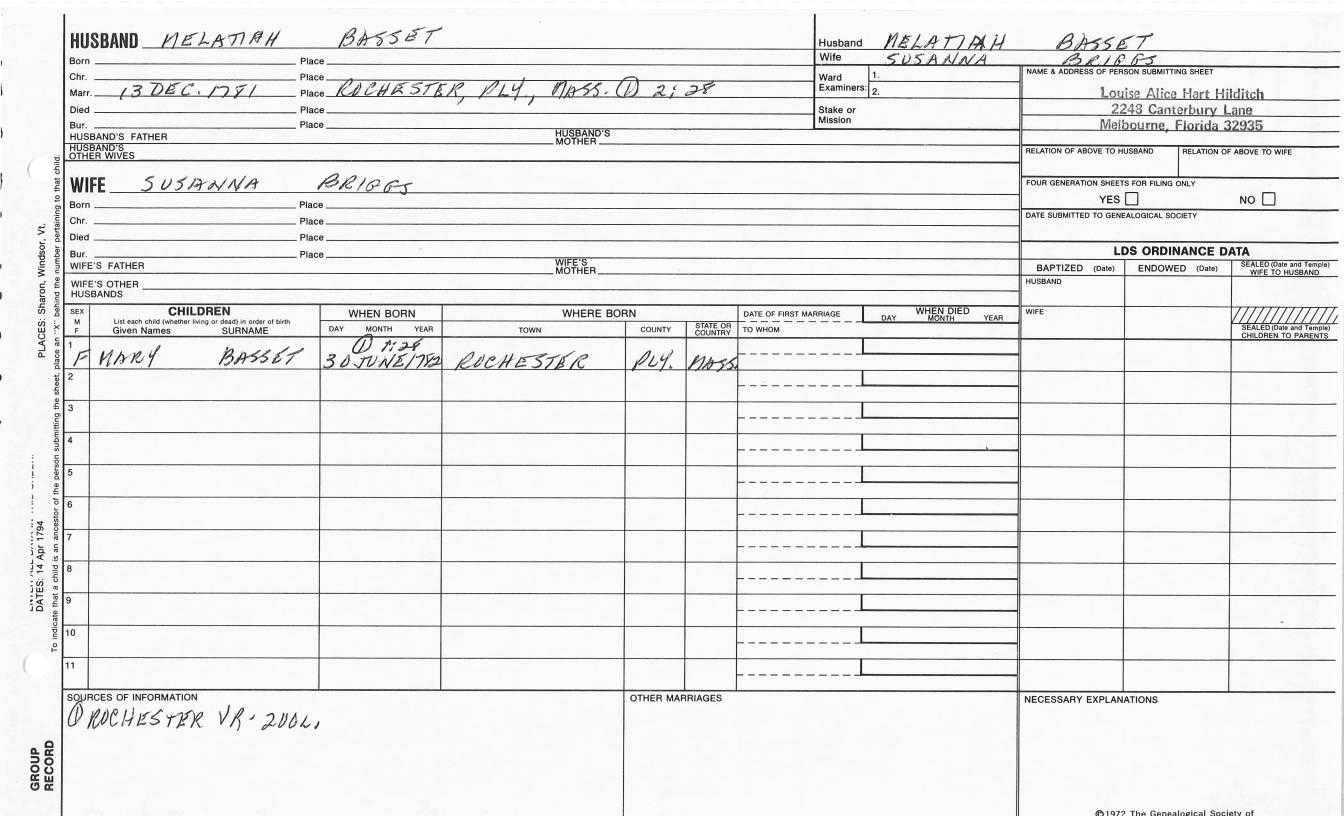 HUSBAND MELATIAH BASSET
Born Place
Chr. Place
Marr. 13 DEC. 1781 Place ROCHESTER, PLY., MASS. ① 2:28
Died Place
Bur. Place
HUSBAND'S FATHER HUSBAND'S MOTHER
HUSBAND'S OTHER WIVES
Husband MELATIAH BASSET
Wife SUSANNA BRIGGS
Ward Examiners: 1.
2.
Stake or Mission
NAME & ADDRESS OF PERSON SUBMITTING SHEET
Louise Alice Hart Hilditch
2248 Canterbury Lane
Melbourne, Florida 32935
RELATION OF ABOVE TO HUSBAND RELATION OF ABOVE TO WIFE
FOUR GENERATION SHEETS FOR FILING ONLY
YES NO
DATE SUBMITTED TO GENEALOGICAL SOCIETY
WIFE SUSANNA BRIGGS
Born Place
Chr. Place
Died Place
Bur. Place
WIFE'S FATHER WIFE'S MOTHER
WIFE'S OTHER HUSBANDS
LDS ORDINANCE DATA
BAPTIZED (Date) ENDOWED (Date) SEALED (Date and Temple) WIFE TO HUSBAND
HUSBAND
WIFE
SEALED (Date and Temple) CHILDREN TO PARENTS
SEX M F
CHILDREN
List each child (whether living or dead) in order of birth
Given Names SURNAME
WHEN BORN
DAY MONTH YEAR
WHERE BORN
TOWN COUNTY STATE OR COUNTRY
DATE OF FIRST MARRIAGE
TO WHOM
WHEN DIED
DAY MONTH YEAR
① 1:28
1 F MARY BASSET 30 JUNE 1782 ROCHESTER PLY. MASS.
2
3
4
5
6
7
8
9
10
11
SOURCES OF INFORMATION
① ROCHESTER VR - 2VOL.
OTHER MARRIAGES
NECESSARY EXPLANATIONS
©1972 The Genealogical Society of
PLACES: Sharon, Windsor, Vt.
DATES: 14 Apr 1794
To indicate that a child is an ancestor of the person submitting the sheet, place an "X" behind the number pertaining to that child.
GROUP
RECORD